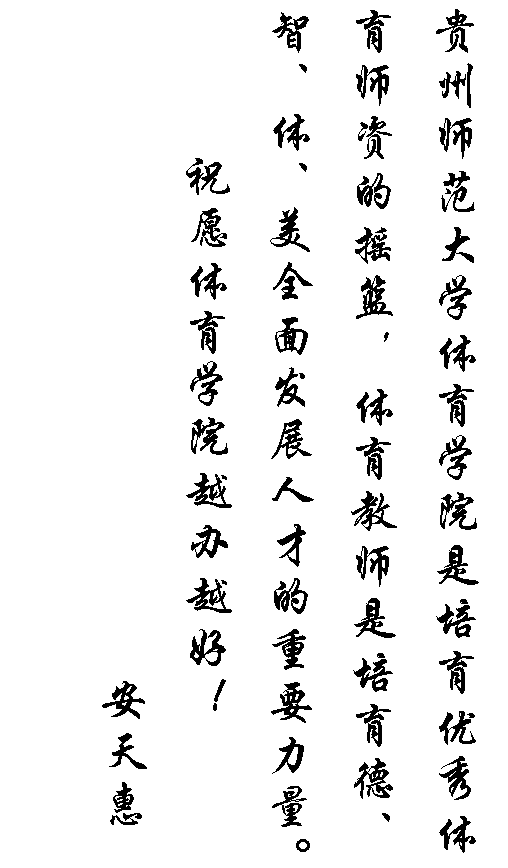 贵州师范大学体育学院是培育优秀体
育师资的摇篮，体育教师是培育德、
智、体、美全面发展人才的重要力量。
祝愿体育学院越办越好！
安天惠